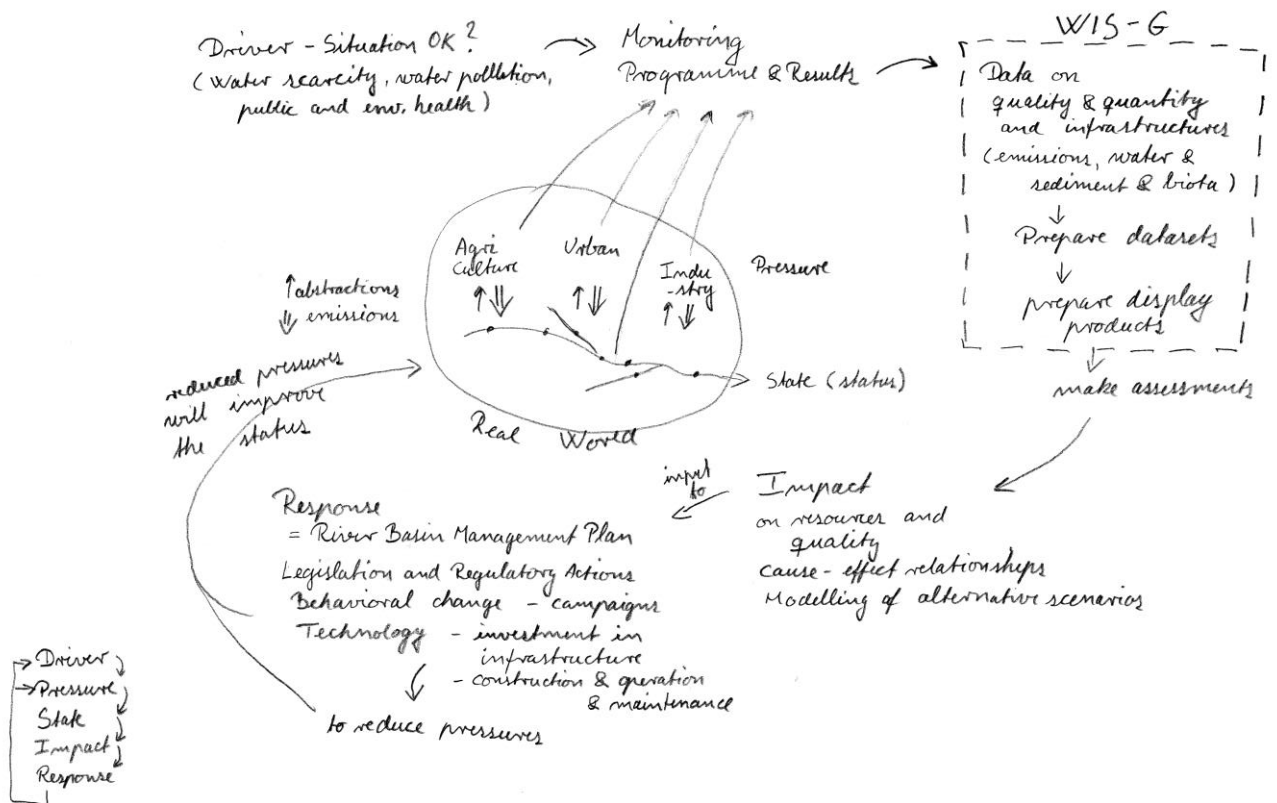 Driver - Situation OK?
(Water scarcity, water pollution,
public and env. health)
Monitoring
Programme & Results
WIS-G
Data on
quality & quantity
and infrastructures
(emissions, water &
sediment & biota)
Prepare datasets
prepare display
products
make assessments
Agri
Culture
Urban
Indu
-stry
Pressure
↑abstractions
⇓ emissions
State (status)
Real World
reduced pressures
will improve
the status
input
to
Impact
on resources and
quality
cause-effect relationships
Modelling of alternative scenarios
Response
= River Basin Management Plan
Legislation and Regulatory Actions
Behavioral change - campaigns
Technology - investment in
infrastructure
- construction & operation
& maintenance
to reduce pressures
Driver
Pressure
State
Impact
Response